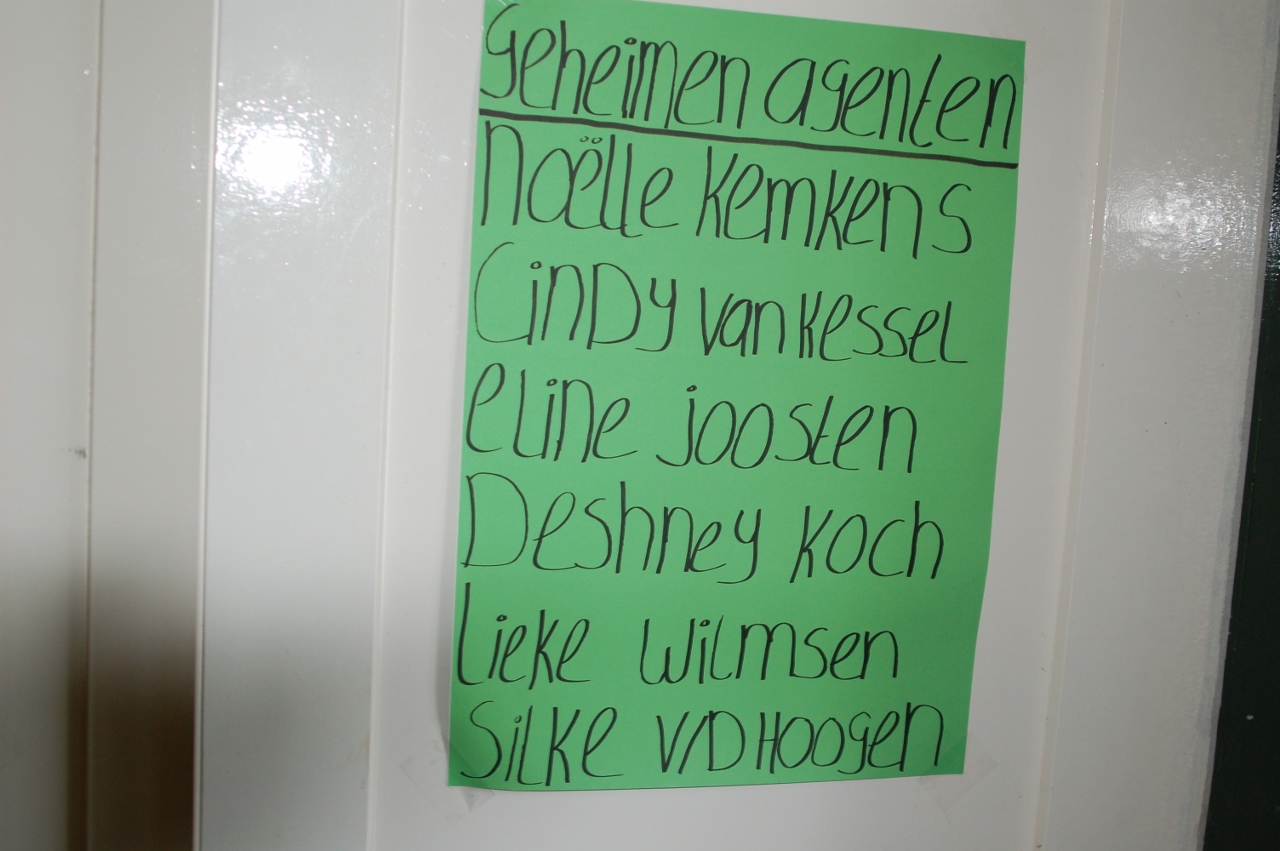 geheimen agenten
Noëlle Kemkens
CinDy van Kessel
eline joosten
Deshney Koch
Lieke Wilmsen
Silke V/D Hoogen